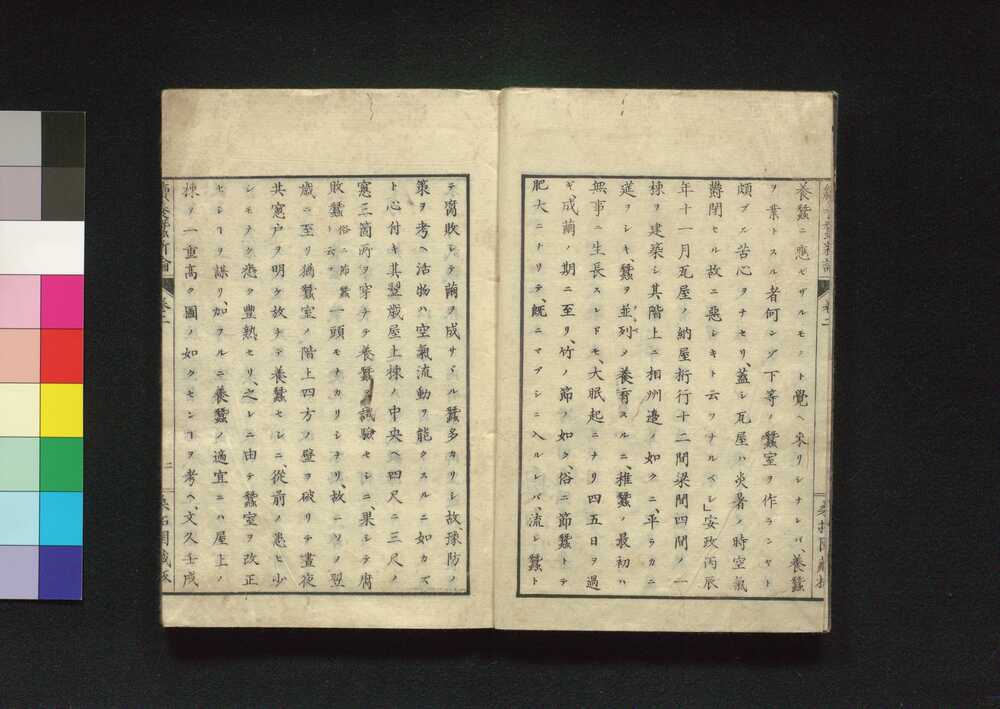 養蚕ニ應ゼザルモノト覺ヘ来リシナレバ、養蚕
ヲ業トスル者何ンゾ下等ノ蠶室ヲ作ランヤト
頗ブル苦心ヲナセリ、蓋シ瓦屋ハ炎暑ノ時空氣
欝閉セル故ニ惡シキト云フナルベシ」安政丙辰
年十一月瓦屋ノ納屋桁行十二間梁間四間ノ一
棟ヲ建築シ其階上ニ相州邉ノ如クニ、平ラカニ
莚ヲシキ、蠶ヲ並列メ養育スルニ、稚蠶ノ最初ハ
無事ニ生長スレドモ、大眠起ニナリ四五日ヲ過
ギ成繭ノ期ニ至リ、竹ノ節ノ如ク、俗ニ節蠶トテ
肥大ニナリテ、既ニマブシニ入ルレバ、流シ蠶ト
テ腐敗シテ繭ヲ成サヾル蠶多カリシ故、豫防ノ
策ヲ考ヘ活物ハ空氣流動ヲ能クスルニ如カズ
ト心付キ其翌歳屋上棟ノ中央ヘ四尺ニ三尺ノ
窻三箇所ヲ穿チテ養蠶ヲ試驗セシニ、果シテ腐
敗蠶俗ニ節蠶ト云フ一頭モナカリシナリ、故ニ一ソノ翌
歳ニ至リ猶蠶室ノ階上四方ノ壁ヲ破リテ晝夜
共窻戸ヲ明ケ放チテ養蠶セシニ、從前ノ患ヒ少
シモナク悉ク豐熟セリ、之レニ由テ蠶室ヲ改正
セシヿヲ謀リ、加フルニ養蠶ノ適宜ニハ屋上ノ
棟ヲ一重高ク圖ノ如クセンヿヲ考ヘ、文久壬戌
二